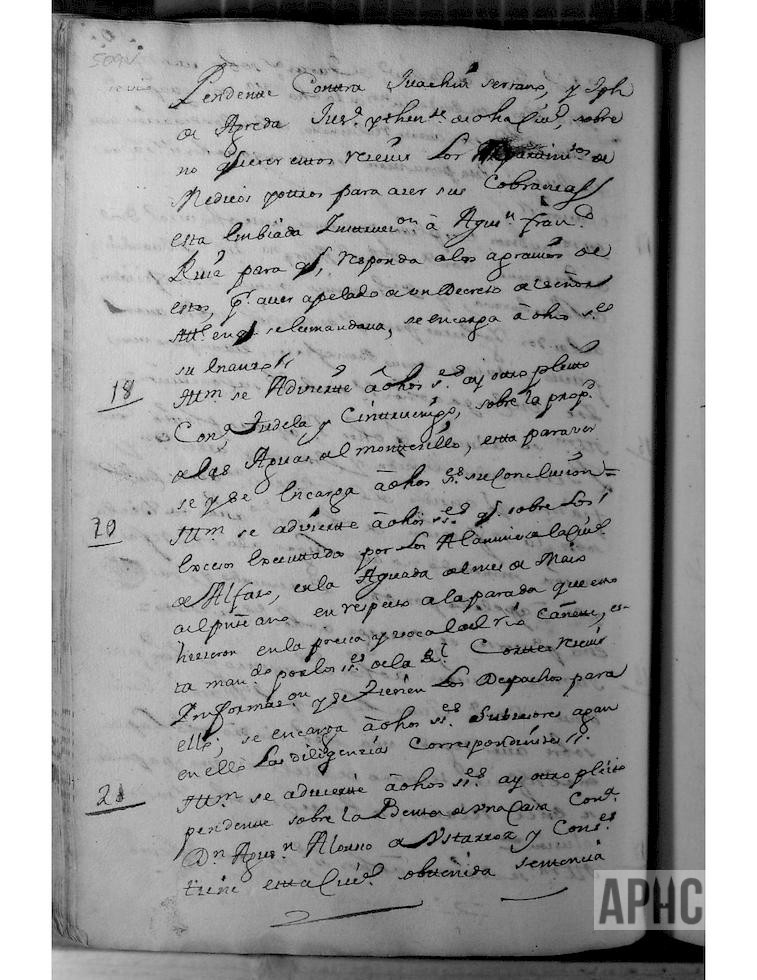 509v.
Pendente Contra Juachin serrano, y Jph
de Agreda Jurs. y thente de dha Ciud, sobre
no querer estos recivir Los Repartimtos de
Medicos y otros para acer sus Cobranças
esta embiada Instruon à Agusn franco
Ruiz para qe responda a los agravios de
estos, pr aver apelado de un Decreto de señor
Alle. en qe se le mandava, se encarga à dhos sres
su
18 Ittm se Advierte à dhos sres ay otro pleito
Cona Tudela y Cintruenigo, sobre la propd
de las Aguas del monterillo, esta para ver
se y se encarga à dhos sres su Conclusion =
20 Ittm se advierte à dhos sres qe sobre Los
excesos executados por Los Alamines de la Ciud
de Alfaro, en la Aguada del mes de Maio
del pnte ano en respeto a la parada que esto
hicieron en la presa y vocal del rio Cañete, es-
ta mando por los sres de la Rl Corte recivir
Informazon y se tienen Los Depachos para
ello, se encarga à dhos sres Subsesores agan
en ello Las diligencias Correspondientes
21 Ittm se advierte à dhos sres ay otro pleito
pendente sobre la Benta de Una Casa Cona
Dn Agusn Alonso de Ystarroz y Conses
tiene esta Ciud. obtenida sentencia
APHC